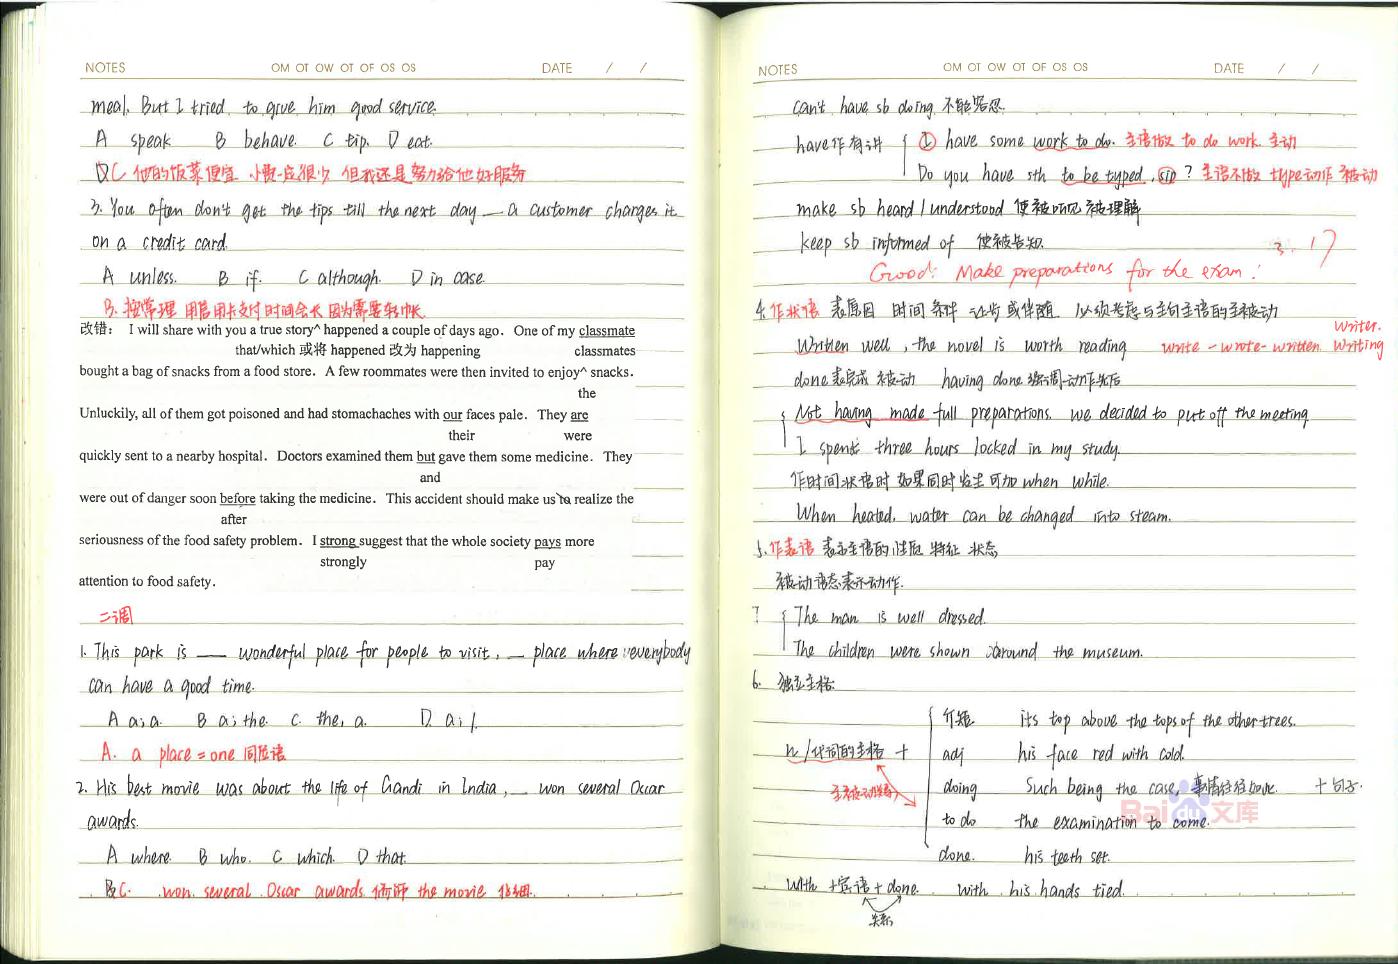 NOTES OM OT OW OT OF OS OS DATE / /
meal. But I tried to give him good service.
A speak B behave. C tip. D eat.
C 他的饭菜便宜 小费一应很少 但我还是努力给他好服务
3. You often don't get the tips till the next day — a customer charges it
on a credit card.
A unless. B if. C although. D in case.
B. 按常理 用信用卡支付时间会长 因为需要转帐.
改错： I will share with you a true story^ happened a couple of days ago. One of my classmate
that/which 或将 happened 改为 happening classmates
bought a bag of snacks from a food store. A few roommates were then invited to enjoy^ snacks.
the
Unluckily, all of them got poisoned and had stomachaches with our faces pale. They are
their were
quickly sent to a nearby hospital. Doctors examined them but gave them some medicine. They
and
were out of danger soon before taking the medicine. This accident should make us to realize the
after
seriousness of the food safety problem. I strong suggest that the whole society pays more
strongly pay
attention to food safety.
二调
1. This park is — wonderful place for people to visit, — place where everybody
can have a good time.
A a; a. B a; the. C. the, a. D. a; /.
A. a place = one 同位语
2. His best movie was about the life of Gandi in India, — won several Oscar
awards.
A where. B who. C which. D that.
C. won several Oscar awards 修饰 the movie
NOTES OM OT OW OT OF OS OS DATE / /
can't have sb doing 不能容忍.
have作有讲 ① have some work to do. 主语做 to do work 主动
Do you have sth to be typed, sir? 主语不做 type动作 被动
make sb heard / understood 使被听见 被理解
keep sb informed of 使被告知
3.17
Good! Make preparations for the exam!
4. 作状语 表原因 时间 条件 让步 或伴随 必须考虑与主句主语的主被动
writer.
Written well, the novel is worth reading write - wrote - written. writing
done表完成 被动 having done 强调动作先后
Not having made full preparations. we decided to put off the meeting.
I spent three hours locked in my study.
作时间状语时 如果同时发生可加 when while.
When heated, water can be changed into steam.
5. 作表语 表示主语的性质 特征 状态
被动语态表示动作.
? The man is well dressed.
The children were shown around the museum.
6. 独立主格:
介短 its top above the tops of the other trees.
n./代词的主格 + adj his face red with cold.
主被动关系 doing Such being the case, 事情经经如此. + 句子.
Baidu文库
to do the examination to come.
done. his teeth set.
with +宾语 + done. with his hands tied.
关系